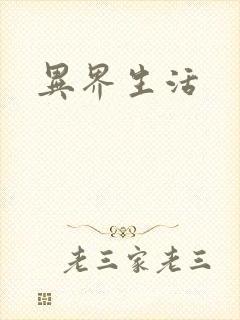 異界生活
老三家老三